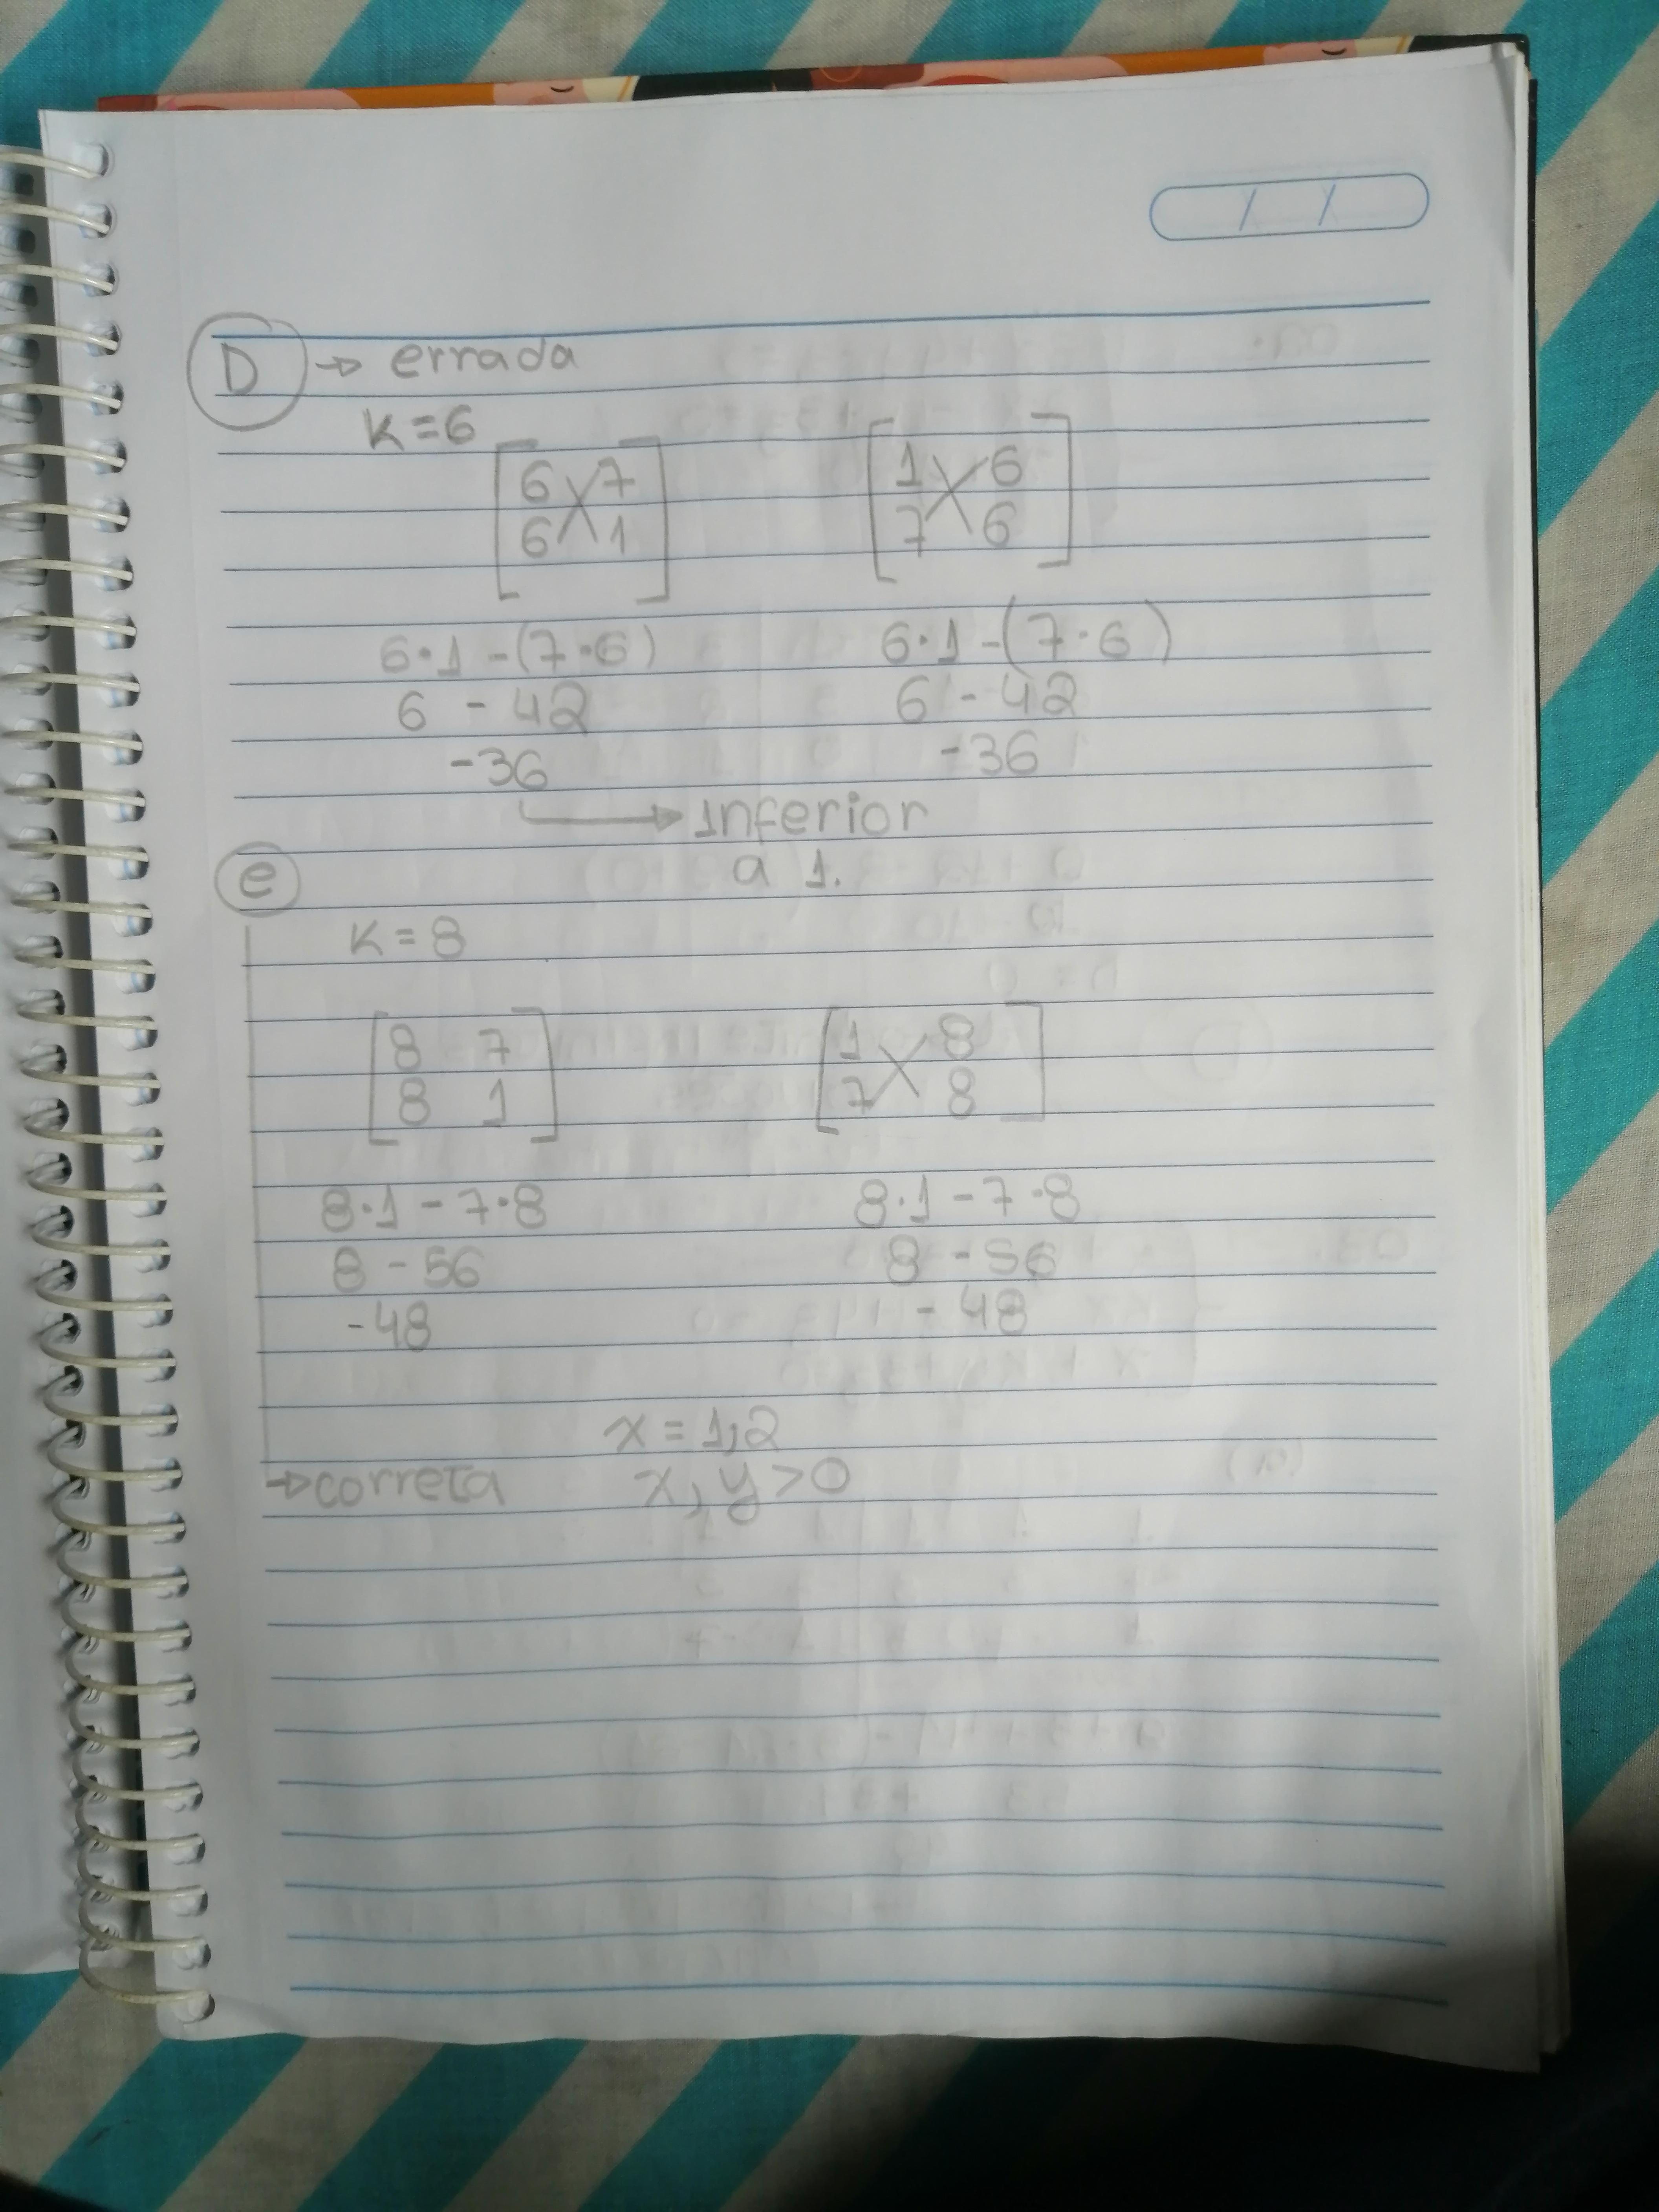 D → errada
K=6
6 7 1 6
6 1 7 6
6·1-(7·6) 6·1-(7·6)
6 - 42 6 - 42
-36 -36
→ Inferior
a 1.
e
K = 8
8 7 1 8
8 1 7 8
8·1-7·8 8·1-7·8
8 - 56 8 - 56
-48 - 48
x = 1,2
→ correta x, y > 0